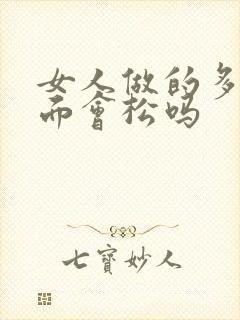 女人做的多
而會松吗
七寳妙人